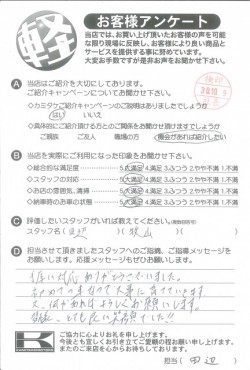 軽
お客様アンケート
当店では、お買い上げ頂いたお客様の声を可能
な限り現場に反映し、お客様により良い商品と
サービスを提供する事に努めています。
大変お手数ですが是非お声をお聞かせ下さい。
A 当店はご紹介を大切にしております。
ご紹介キャンペーンについてお聞かせ下さい。
◇カミタケご紹介キャンペーンのご説明はありましたでしょうか
はい いいえ
◇具体的にご紹介頂ける方とのご関係をお聞かせ頂けますでしょうか
ご親族 ご友人 ご職場の方 機会があれば紹介したい
B 当店を実際にご利用になった印象をお聞かせ下さい。
◇総合的な満足度 5.大満足 4.満足 3.ふつう 2.やや不満 1.不満
◇スタッフの対応 5.大満足 4.満足 3.ふつう 2.やや不満 1.不満
◇お店の雰囲気、清掃 5.大満足 4.満足 3.ふつう 2.やや不満 1.不満
◇納車時のお車の状態 5.大満足 4.満足 3.ふつう 2.やや不満 1.不満
C 評価したいスタッフがいれば教えてください。
スタッフ名( 田辺 )( 牧山 )
D 担当させて頂きましたスタッフへのご指摘、ご指導メッセージを
お願いします。応援メッセージもぜひお願いします。
ありがとうございました。
大事に
よろしくお願いします。
ご協力に心よりお礼を申し上げます。
今後とも宜しくお引き立てご愛顧の程お願い申し上げます。
またのご来店を心からお待ちしております。
担当( 田辺 )